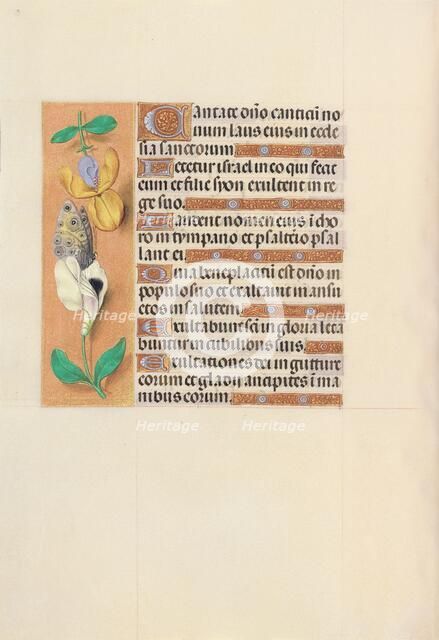 Cantate dño canticũ no
uum laus eius in eccle
sia sanctorum
Letetur israel in eo qui fecit
eum et filie syon exultent in re
ge suo.
Laudent nomen eius ĩ cho
ro in tympano et psalterio psal
lant ei.
Quia beneplacitũ est dño in
populo suo et exaltauit mansu
etos in salutem.
Exultabunt scĩ in gloria leta
buntur in cubilibus suis.
Exultationes dei in gutture
eorum et gladij ancipites ĩ ma
nibus eorum.
Heritage Heritage
Heritage Heritage
Heritage Heritage